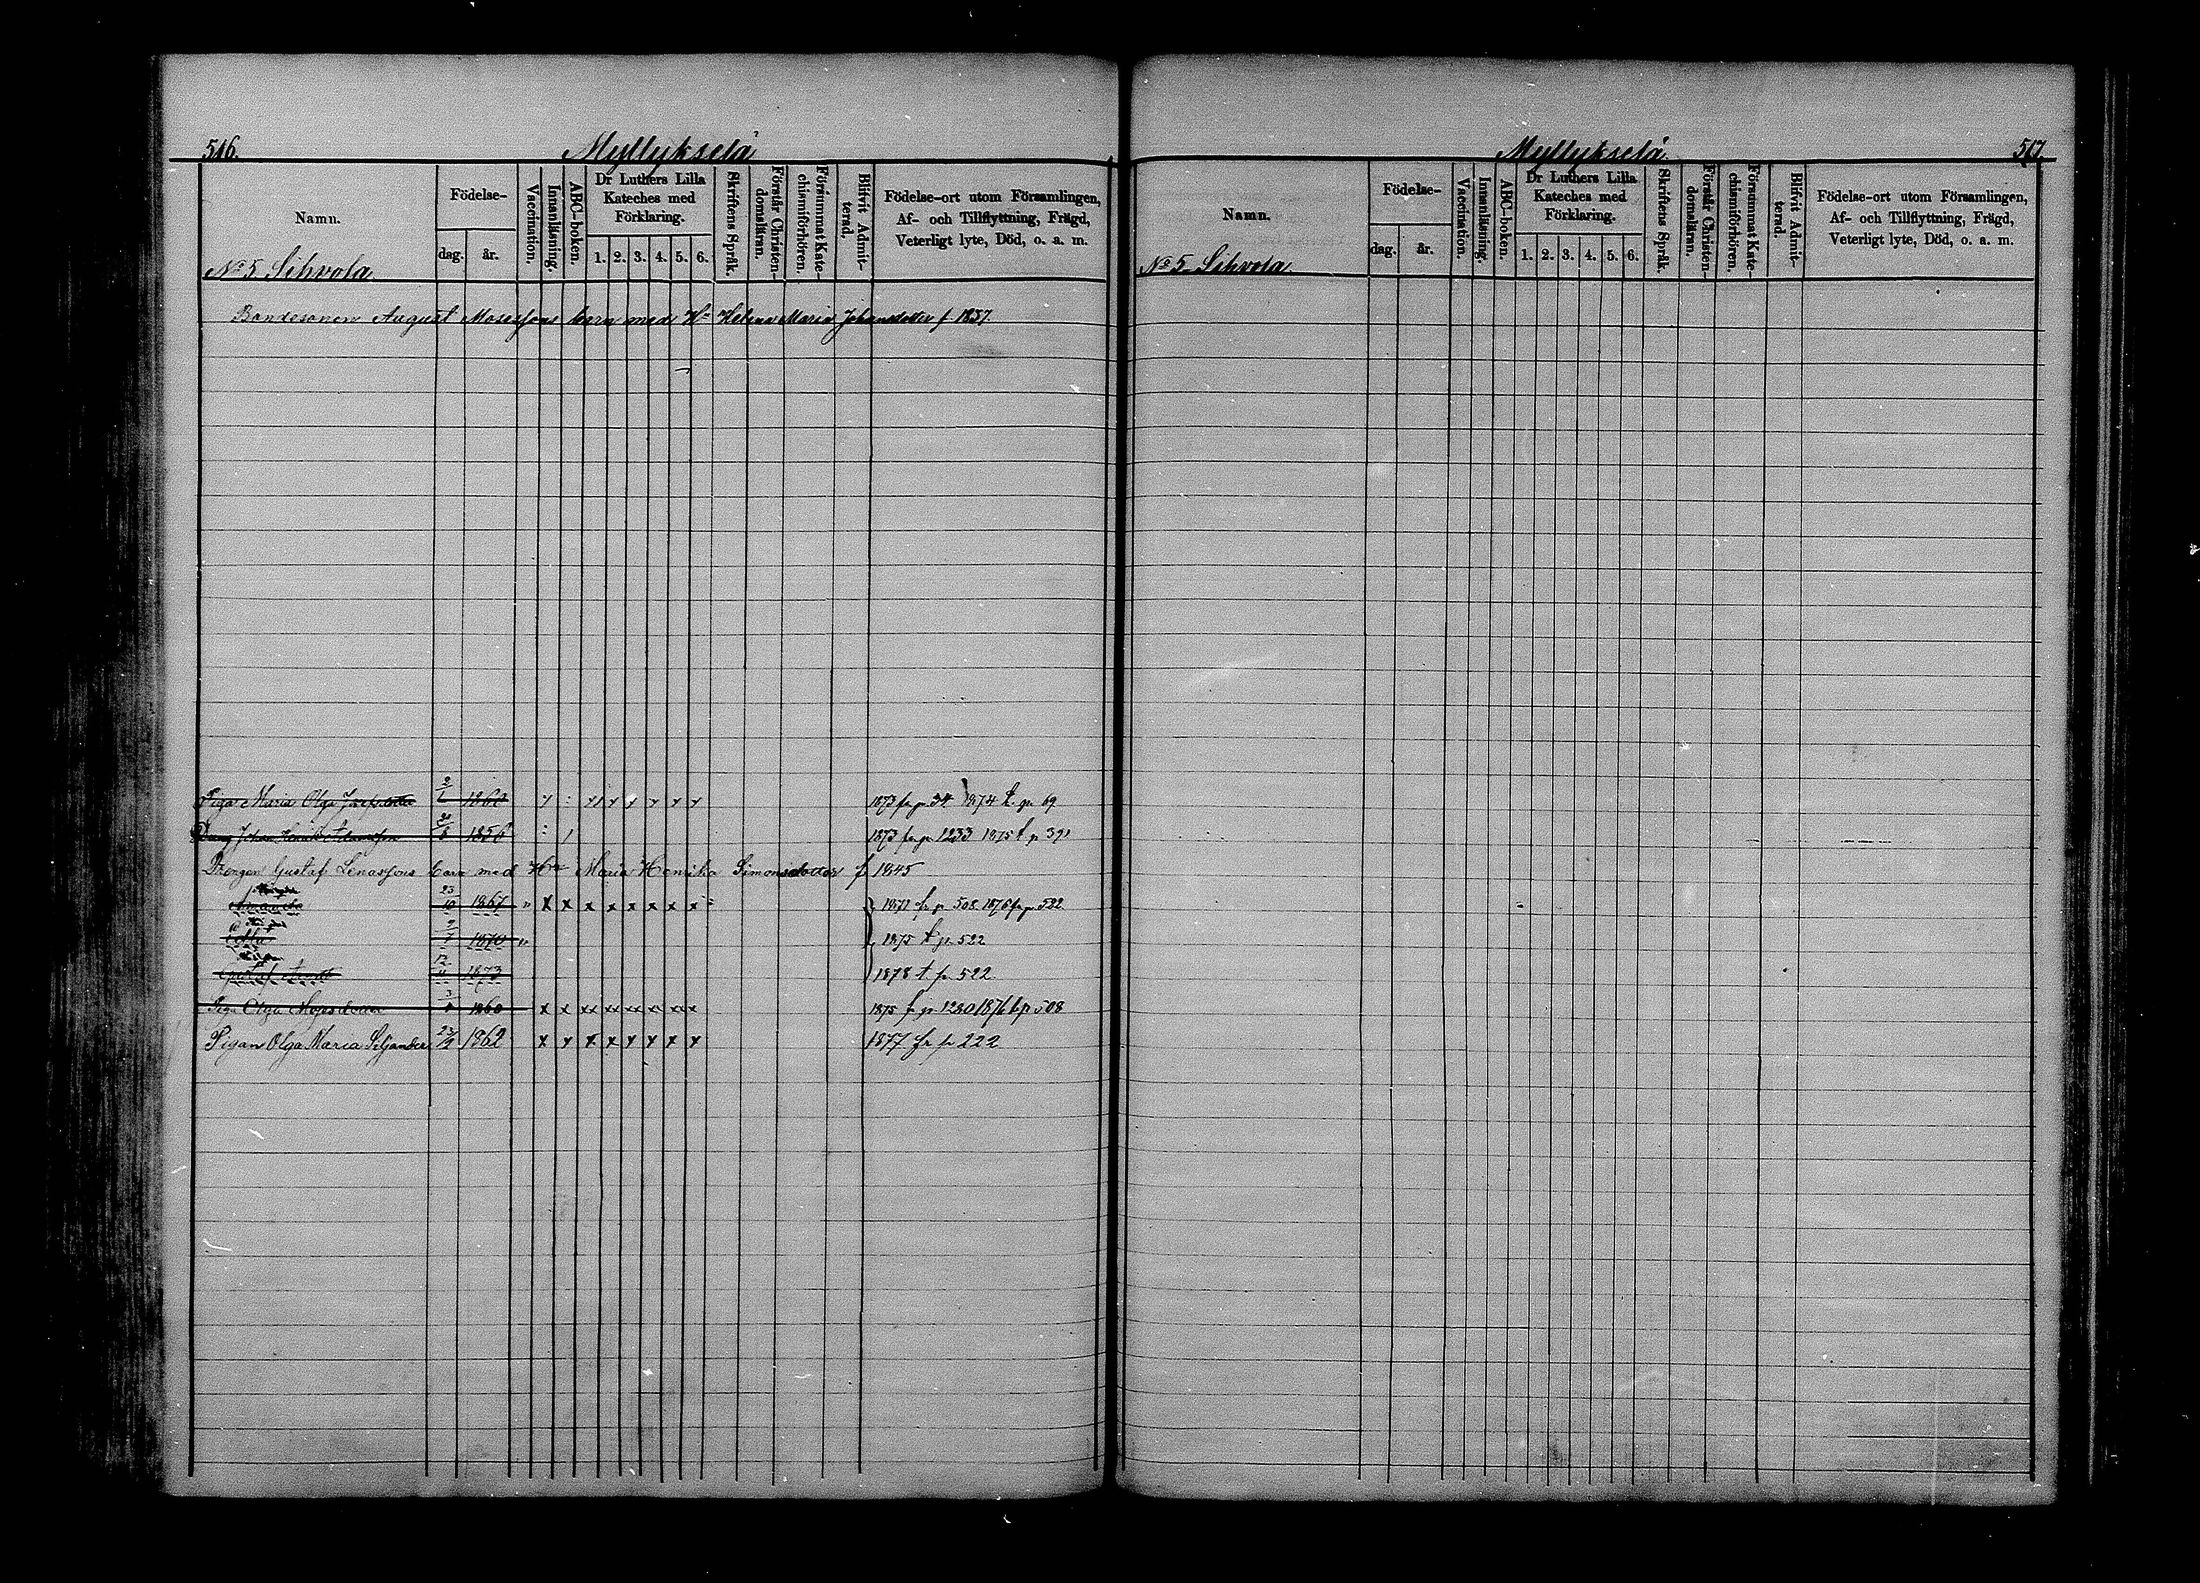 516.
Myllykselä
Namn.
Födelse-
dag. år.
Vaccination.
Innanläsning.
ABC-boken.
Dr Luthers Lilla
Kateches med
Förklaring.
1. 2. 3. 4. 5. 6.
Skriftens Språk.
Förstår Christen-
domsläran.
Försummat Kate-
chismiförhören.
Blifvit Admit-
terad.
Födelse-ort utom Församlingen,
Af- och Tillflyttning, Frägd,
Veterligt lyte, Död, o. a. m.
No 5 Sihvola
Bondesonen August Mosesfons barn med Hu Helena Maria Johansdotter f 1857.
Piga Maria Olga 1860 1873 fr p. 34 1874 t. p. 69
Dräng Johan Henrik 1856 1873 fr p 1233 1875 t p 391
Drengen Gustaf Lenasfons barn med Hu Maria Henrika Simonsdotter f 1845
Amanda 23/10 1867 1871 fr p 508 1876 fr p 522
1870 1875 t p 522
Gustaf 12/11 1873 1878 t p 522
Piga Olga 1860 1875 fr p 1230 1876 t p 508
Pigan Olga Maria Siljander 1862 1877 fr p 222
Myllykselä.
517.
Namn.
Födelse-
dag. år.
Vaccination.
Innanläsning.
ABC-boken.
Dr Luthers Lilla
Kateches med
Förklaring.
1. 2. 3. 4. 5. 6.
Skriftens Språk.
Förstår Christen-
domsläran.
Försummat Kate-
chismiförhören.
Blifvit Admit-
terad.
Födelse-ort utom Församlingen,
Af- och Tillflyttning, Frägd,
Veterligt lyte, Död, o. a. m.
No 5 Sihvola